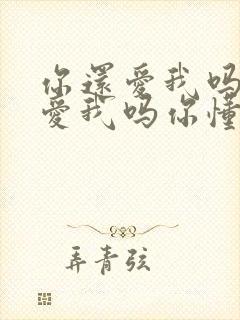 你還愛我吗
愛我吗你懂
弄青弦